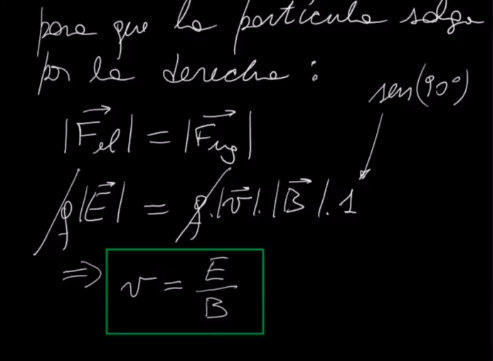 para que la partícula salga
por la derecha:
sen(90°)
|F⃗el| = |F⃗mg|
q|E⃗| = q.|v⃗|.|B⃗|.1
⇒ v = E/B